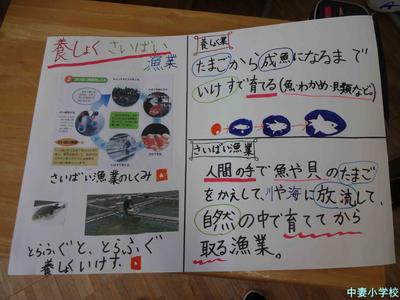 養しょく さいばい
漁業
さいばい漁業のしくみ
とらふぐと、とらふぐ
養しょくいけす。
養しょく業
たまごから成魚になるまで
いけすで育てる(魚・わかめ・貝類など。)
さいばい漁業
人間の手で魚や貝のたまご
をかえして、川や海に放流して、
自然の中で育ててから
取る漁業。
中妻小学校